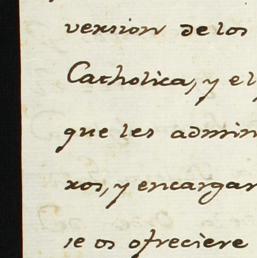 version de los
Catholica, y el
que les admin
xos, y encargar
se os ofreciere